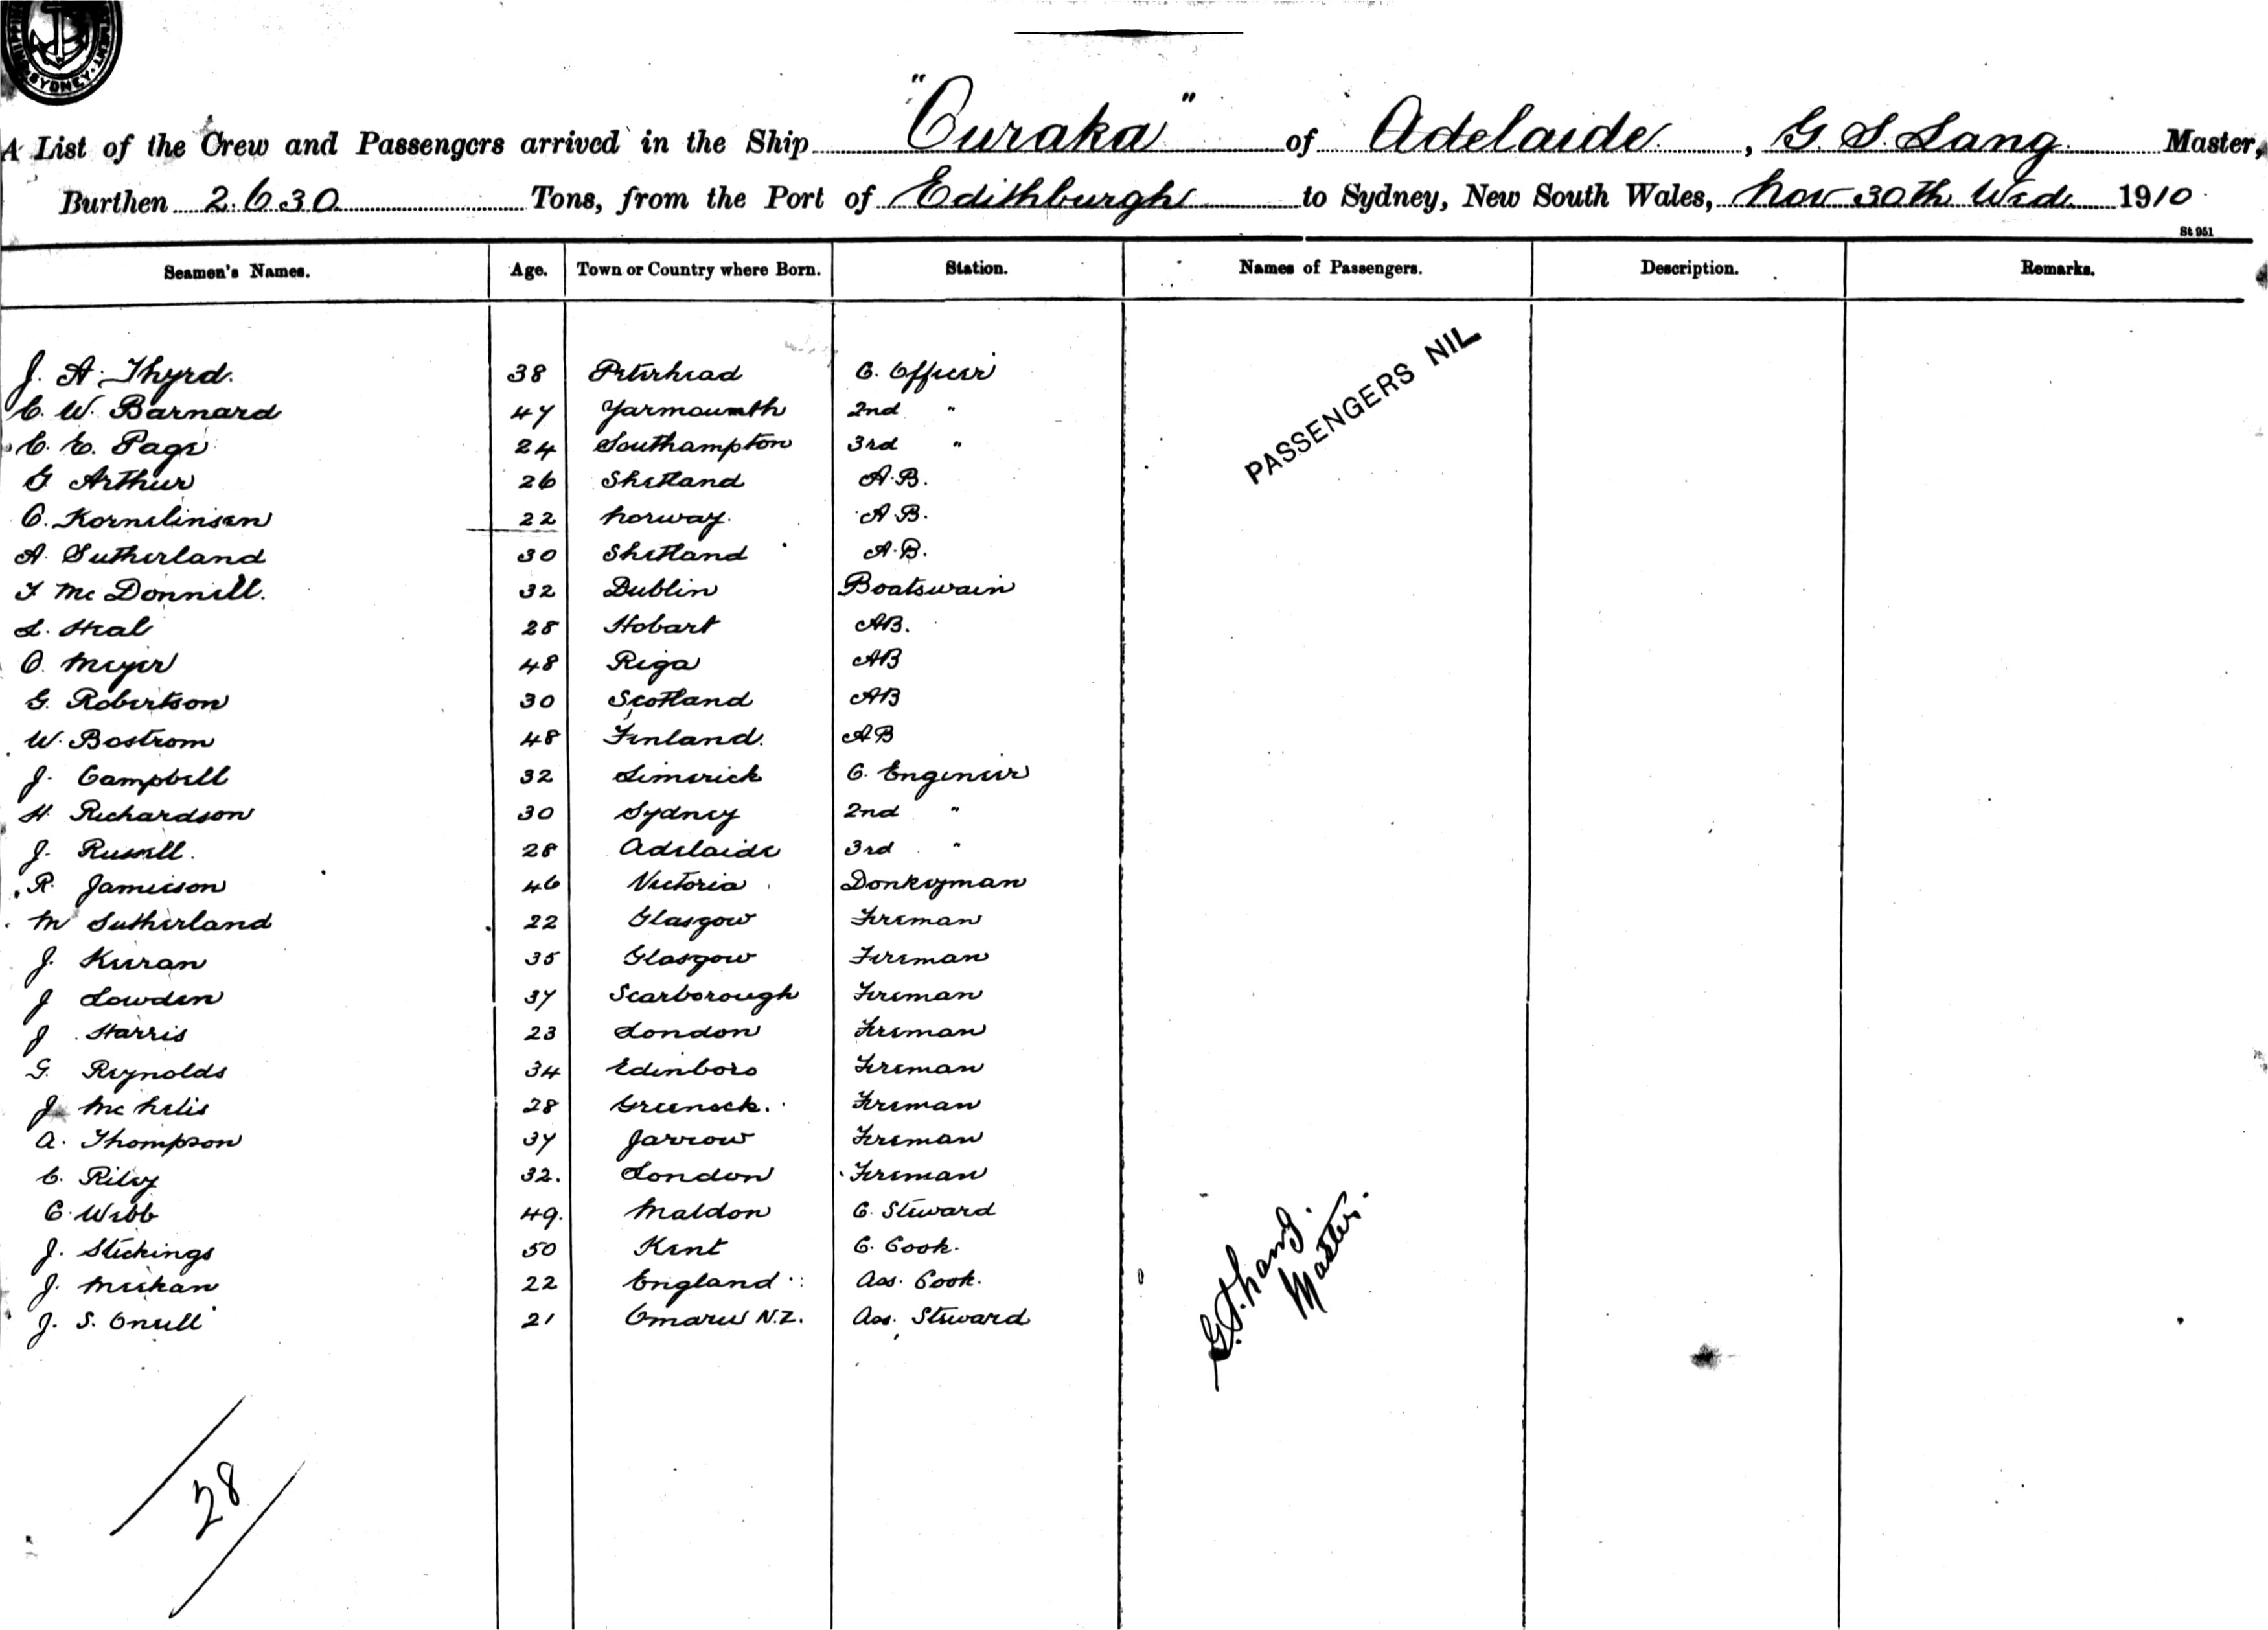 SYDNEY
A List of the Crew and Passengers arrived in the Ship "Ouraka" of Adelaide, G. S. Lang Master,
Burthen 2630 Tons, from the Port of Edithburgh to Sydney, New South Wales, Nov 30th Wed 1910
St 951
Seamen's Names. Age. Town or Country where Born. Station. Names of Passengers. Description. Remarks.
PASSENGERS NIL
J. A. Thyrd. 38 Peterhead C. Officer
C. W. Barnard 47 Yarmoumth 2nd "
C. E. Page 24 Southampton 3rd "
G Arthur 26 Shetland A.B.
O. Kornelinsen 22 Norway. A.B.
A. Sutherland 30 Shetland A.B.
F Mc Donnell. 32 Dublin Boatswain
L. Heal 28 Hobart AB.
O. Meyer 48 Riga AB
G. Robertson 30 Scotland AB
W. Bostrom 48 Finland. AB
J. Campbell 32 Limerick C. Engineer
H. Richardson 30 Sydney 2nd "
J. Russell. 28 Adelaide 3rd "
R. Jamieson 46 Victoria Donkeyman
M Sutherland 22 Glasgow Fireman
J. Kieran 35 Glasgow Fireman
J Lowden 37 Scarborough Fireman
J. Harris 23 London Fireman
G. Reynolds 34 Edinboro Fireman
J. Mc Nelis 28 Greenock. Fireman
A. Thompson 37 Jarrow Fireman
C. Riley 32. London Fireman
C. Webb 49. Maldon C. Steward
J. Stickings 50 Kent C. Cook.
J. Meehan 22 England Ass. Cook.
J. S. Oneill 21 Omaru N.Z. Ass. Steward
G. S. Lang.
Master.
28